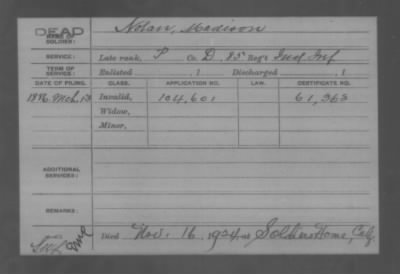 DEAD
NAME OF SOLDIER:
Nolan, Madison
SERVICE:
Late rank, P Co. D, 85 Reg't Ind. Inf
TERM OF SERVICE:
Enlisted , 1 Discharged , 1
DATE OF FILING. CLASS. APPLICATION NO. LAW. CERTIFICATE NO.
Mch. 13 Invalid, 104,601 61,363
Widow,
Minor,
ADDITIONAL SERVICES:
REMARKS:
Died Nov. 16, 1924 at Soldiers Home, Cal.